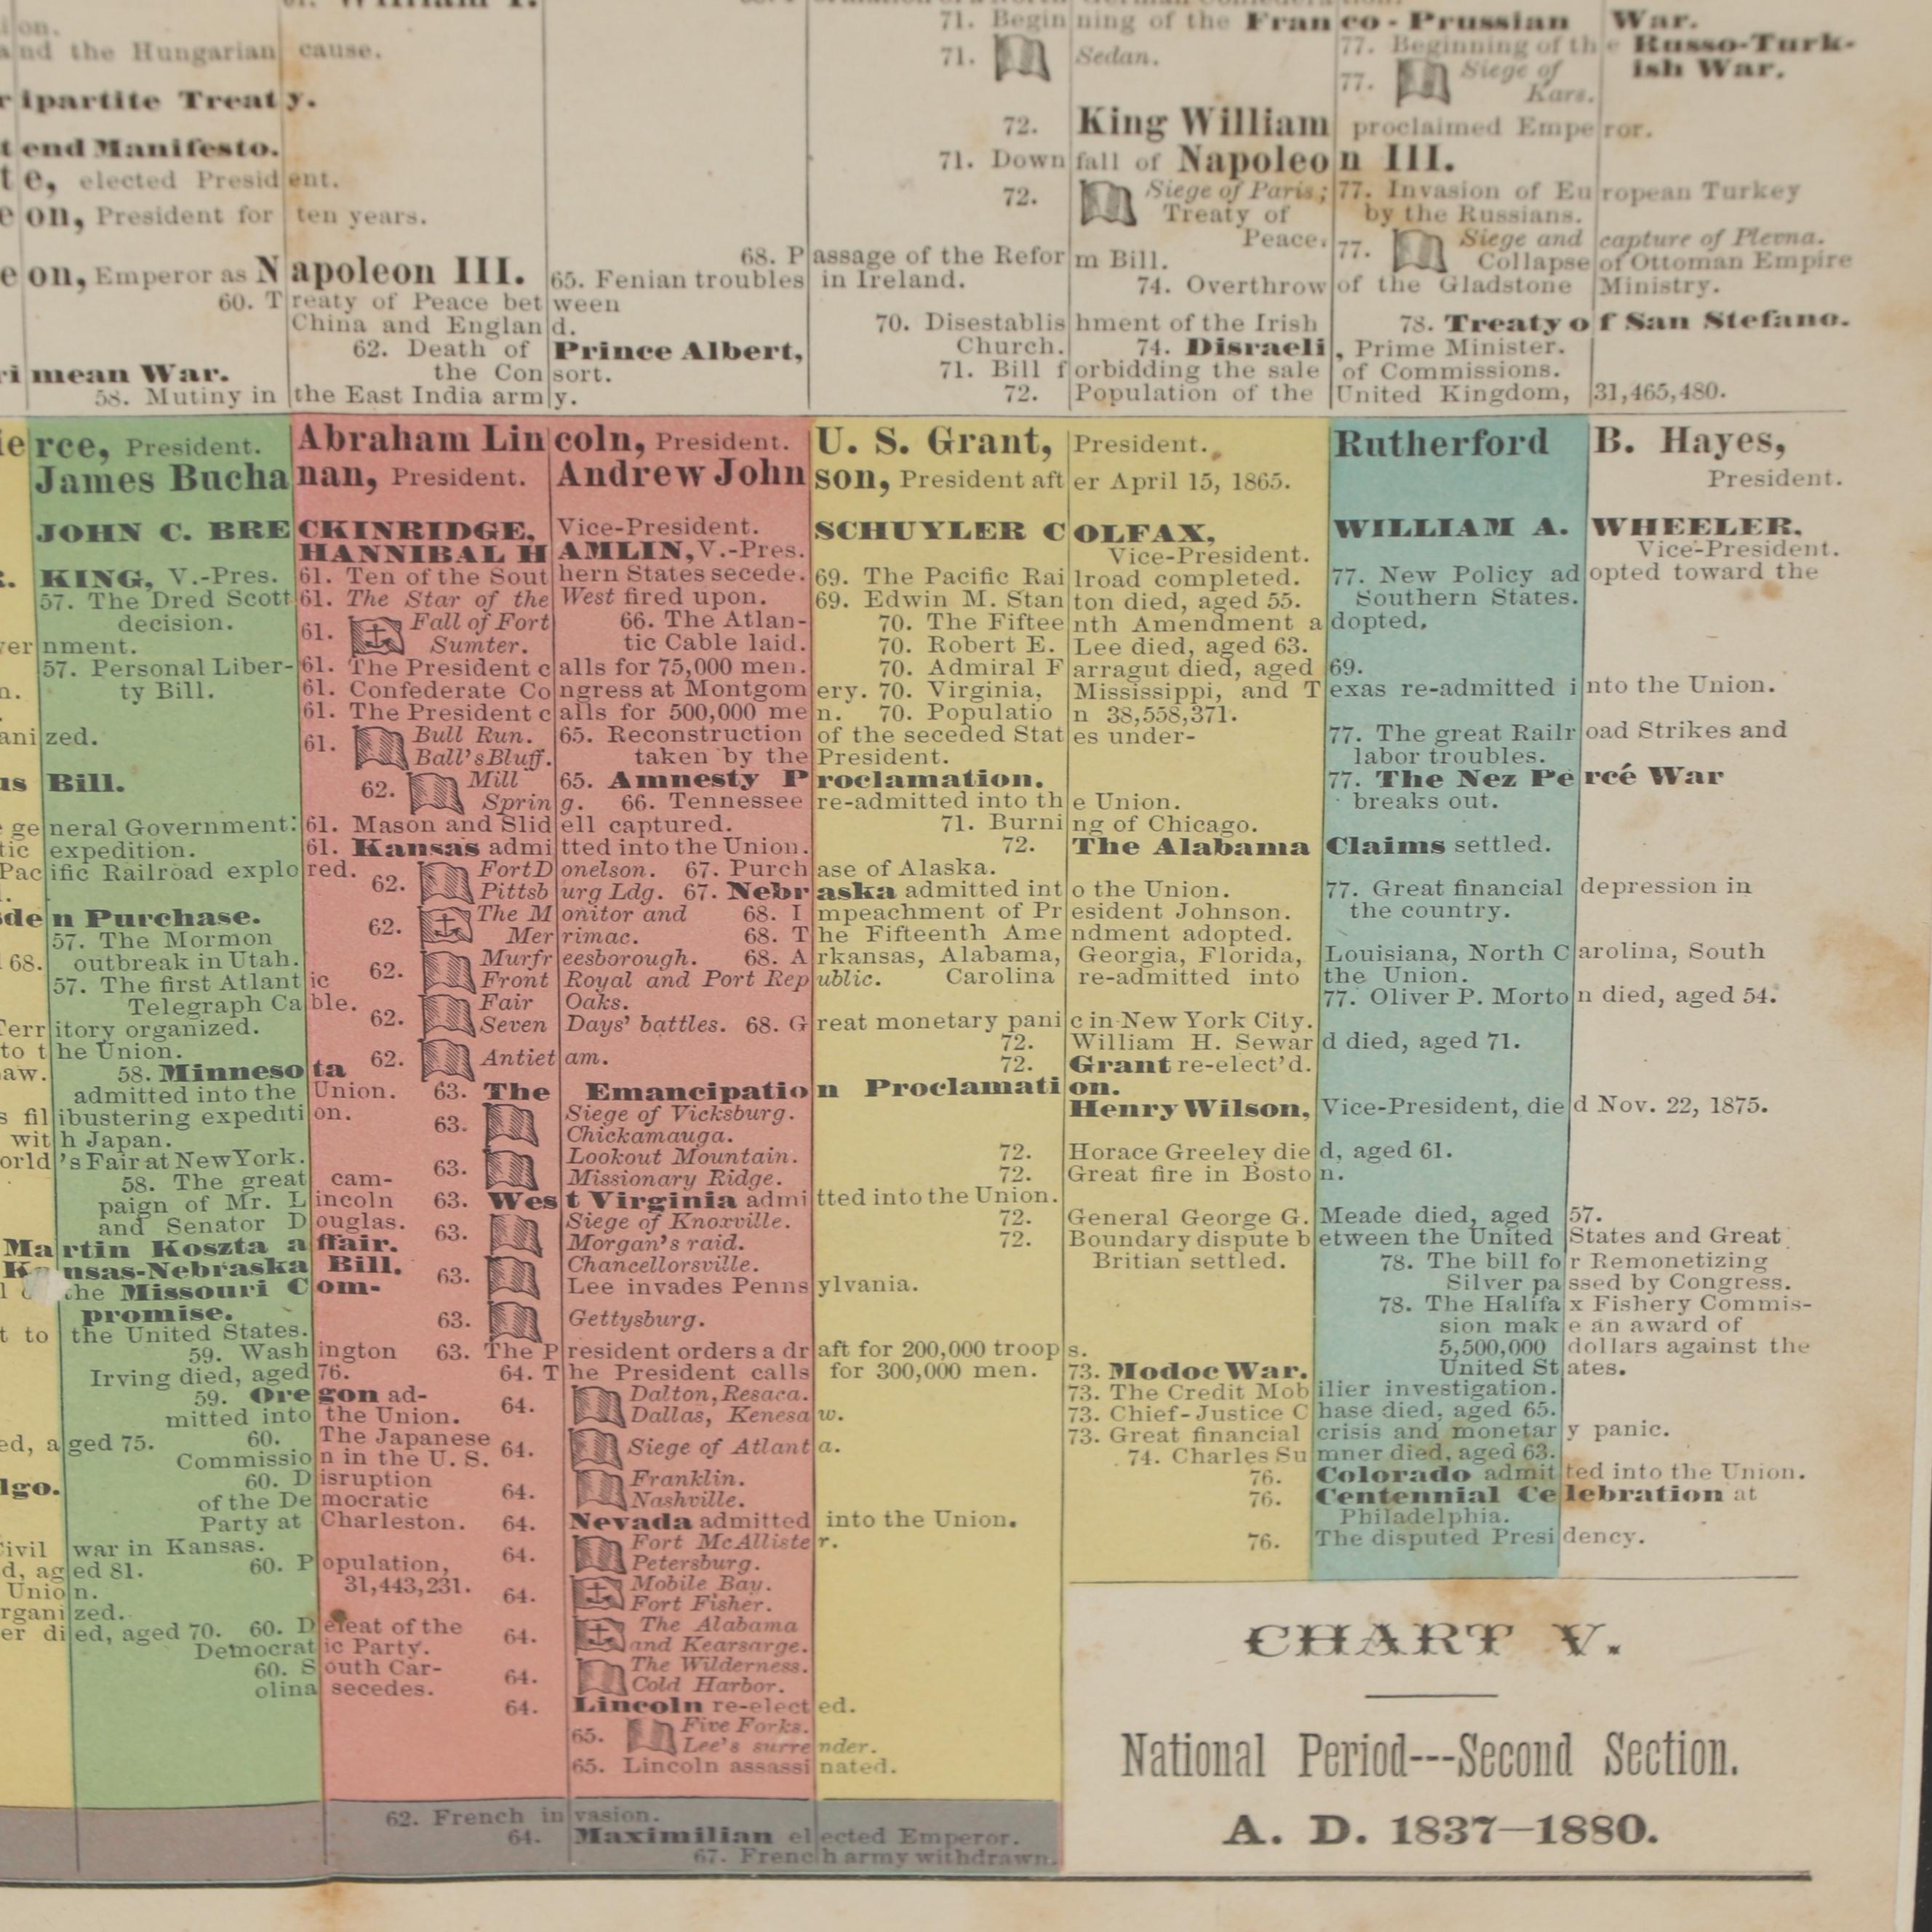 71. Beginning of the Franco-Prussian War.
and the Hungarian cause.
77. Beginning of the Russo-Turkish War.
71. Sedan.
77. Siege of Kars.
ripartite Treaty.
72. King William proclaimed Emperor.
tend Manifesto.
71. Downfall of Napoleon III.
te, elected President.
72. Siege of Paris;
Treaty of
Peace.
77. Invasion of European Turkey
by the Russians.
eon, President for ten years.
77. Siege and capture of Plevna.
Collapse of Ottoman Empire
68. Passage of the Reform Bill.
eon, Emperor as Napoleon III.
65. Fenian troubles in Ireland.
74. Overthrow of the Gladstone Ministry.
60. Treaty of Peace between
China and England.
70. Disestablishment of the Irish
Church.
78. Treaty of San Stefano.
62. Death of Prince Albert,
the Consort.
74. Disraeli, Prime Minister.
rimean War.
71. Bill forbidding the sale of Commissions.
58. Mutiny in the East India army.
72. Population of the United Kingdom, 31,465,480.
ierce, President.
James Buchanan, President.
JOHN C. BRECKINRIDGE, Vice-President.
R. KING, V.-Pres.
57. The Dred Scott
decision.
vernment.
57. Personal Liber-
ty Bill.
n.
anized.
us Bill.
e general Government:
tic expedition.
Pacific Railroad explored.
sden Purchase.
57. The Mormon
outbreak in Utah.
68.
57. The first Atlantic
Telegraph Cable.
Territory organized.
to the Union.
aw.
58. Minnesota
admitted into the Union.
s filibustering expedition.
with Japan.
orld's Fair at New York.
58. The great cam-
paign of Mr. Lincoln
and Senator Douglas.
Martin Koszta affair.
Kansas-Nebraska Bill.
the Missouri Com-
promise.
t to the United States.
59. Washington
Irving died, aged 76.
59. Oregon ad-
mitted into the Union.
ed, aged 75.
60. The Japanese
Commission in the U. S.
60. Disruption
lgo.
of the Democratic
Party at Charleston.
Civil war in Kansas.
d, aged 81.
60. Population,
31,443,231.
Union.
rganized.
er died, aged 70.
60. Defeat of the
Democratic Party.
60. South Car-
olina secedes.
Abraham Lincoln, President.
Andrew Johnson, President after April 15, 1865.
HANNIBAL HAMLIN, V.-Pres.
61. Ten of the Southern States secede.
61. The Star of the West fired upon.
61. Fall of Fort
Sumter.
66. The Atlan-
tic Cable laid.
61. The President calls for 75,000 men.
61. Confederate Congress at Montgomery.
61. The President calls for 500,000 men.
61. Bull Run.
Ball's Bluff.
65. Reconstruction of the seceded States under-
taken by the President.
62. Mill
Spring.
65. Amnesty Proclamation.
66. Tennessee re-admitted into the Union.
61. Mason and Slidell captured.
61. Kansas admitted into the Union.
62. Fort Donelson.
Pittsburg Ldg.
67. Purchase of Alaska.
67. Nebraska admitted into the Union.
62. The Monitor and
Merrimac.
68. Impeachment of President Johnson.
68. The Fifteenth Amendment adopted.
62. Murfreesborough.
Front Royal and Port Republic.
68. Arkansas, Alabama, Georgia, Florida, Louisiana, North Carolina, South
Carolina re-admitted into the Union.
62. Fair Oaks.
Seven Days' battles.
68. Great monetary panic in New York City.
62. Antietam.
63. The Emancipation Proclamation.
63. Siege of Vicksburg.
Chickamauga.
63. Lookout Mountain.
Missionary Ridge.
63. West Virginia admitted into the Union.
63. Siege of Knoxville.
Morgan's raid.
63. Chancellorsville.
Lee invades Pennsylvania.
63. Gettysburg.
63. The President orders a draft for 200,000 troops.
64. The President calls for 300,000 men.
64. Dalton, Resaca.
Dallas, Kenesaw.
64. Siege of Atlanta.
64. Franklin.
Nashville.
64. Nevada admitted into the Union.
64. Fort McAllister.
Petersburg.
64. Mobile Bay.
Fort Fisher.
64. The Alabama
and Kearsarge.
64. The Wilderness.
Cold Harbor.
64. Lincoln re-elected.
65. Five Forks.
Lee's surrender.
65. Lincoln assassinated.
62. French invasion.
64. Maximilian elected Emperor.
67. French army withdrawn.
U. S. Grant, President.
SCHUYLER COLFAX,
Vice-President.
69. The Pacific Railroad completed.
69. Edwin M. Stanton died, aged 55.
70. The Fifteenth Amendment adopted.
70. Robert E. Lee died, aged 63.
70. Admiral Farragut died, aged 69.
70. Virginia, Mississippi, and Texas re-admitted into the Union.
70. Population 38,558,371.
71. Burning of Chicago.
72. The Alabama Claims settled.
72. William H. Seward died, aged 71.
72. Grant re-elect'd.
Henry Wilson, Vice-President, died Nov. 22, 1875.
72. Horace Greeley died, aged 61.
72. Great fire in Boston.
72. General George G. Meade died, aged 57.
72. Boundary dispute between the United States and Great
Britian settled.
73. Modoc War.
73. The Credit Mobilier investigation.
73. Chief-Justice Chase died, aged 65.
73. Great financial crisis and monetary panic.
74. Charles Sumner died, aged 63.
76. Colorado admitted into the Union.
76. Centennial Celebration at
Philadelphia.
76. The disputed Presidency.
Rutherford B. Hayes,
President.
WILLIAM A. WHEELER,
Vice-President.
77. New Policy adopted toward the
Southern States.
77. The great Railroad Strikes and
labor troubles.
77. The Nez Percé War
breaks out.
77. Great financial depression in
the country.
77. Oliver P. Morton died, aged 54.
78. The bill for Remonetizing
Silver passed by Congress.
78. The Halifax Fishery Commis-
sion make an award of
5,500,000 dollars against the
United States.
CHART V.
National Period---Second Section.
A. D. 1837-1880.